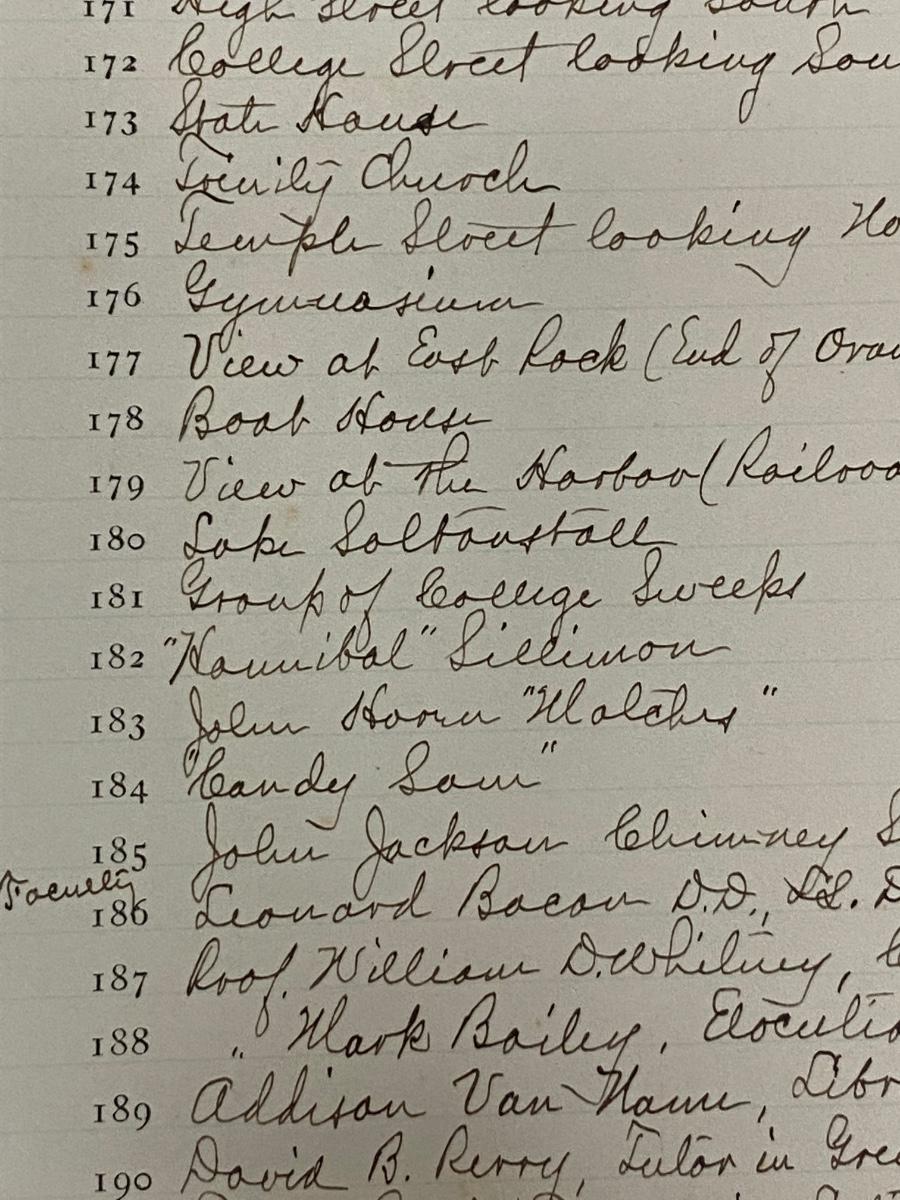 171 High Street looking South
172 College Street looking Sou
173 State House
174 Trinity Church
175 Temple Street looking No
176 Gymnasium
177 View at East Rock (End of Oran
178 Boat House
179 View at the Harbor (Railroa
180 Lake Saltonstall
181 Group of College Sweeps
182 "Hannibal" Silliman
183 John Hoorn "Matches"
184 "Candy Sam"
185 John Jackson Chimney S
Faculty
186 Leonard Bacon D.D., LL. D
187 Prof. William D. Whitney, C
188 „ Mark Bailey, Elocutio
189 Addison Van Name, Libr
190 David B. Perry, Tutor in Gree